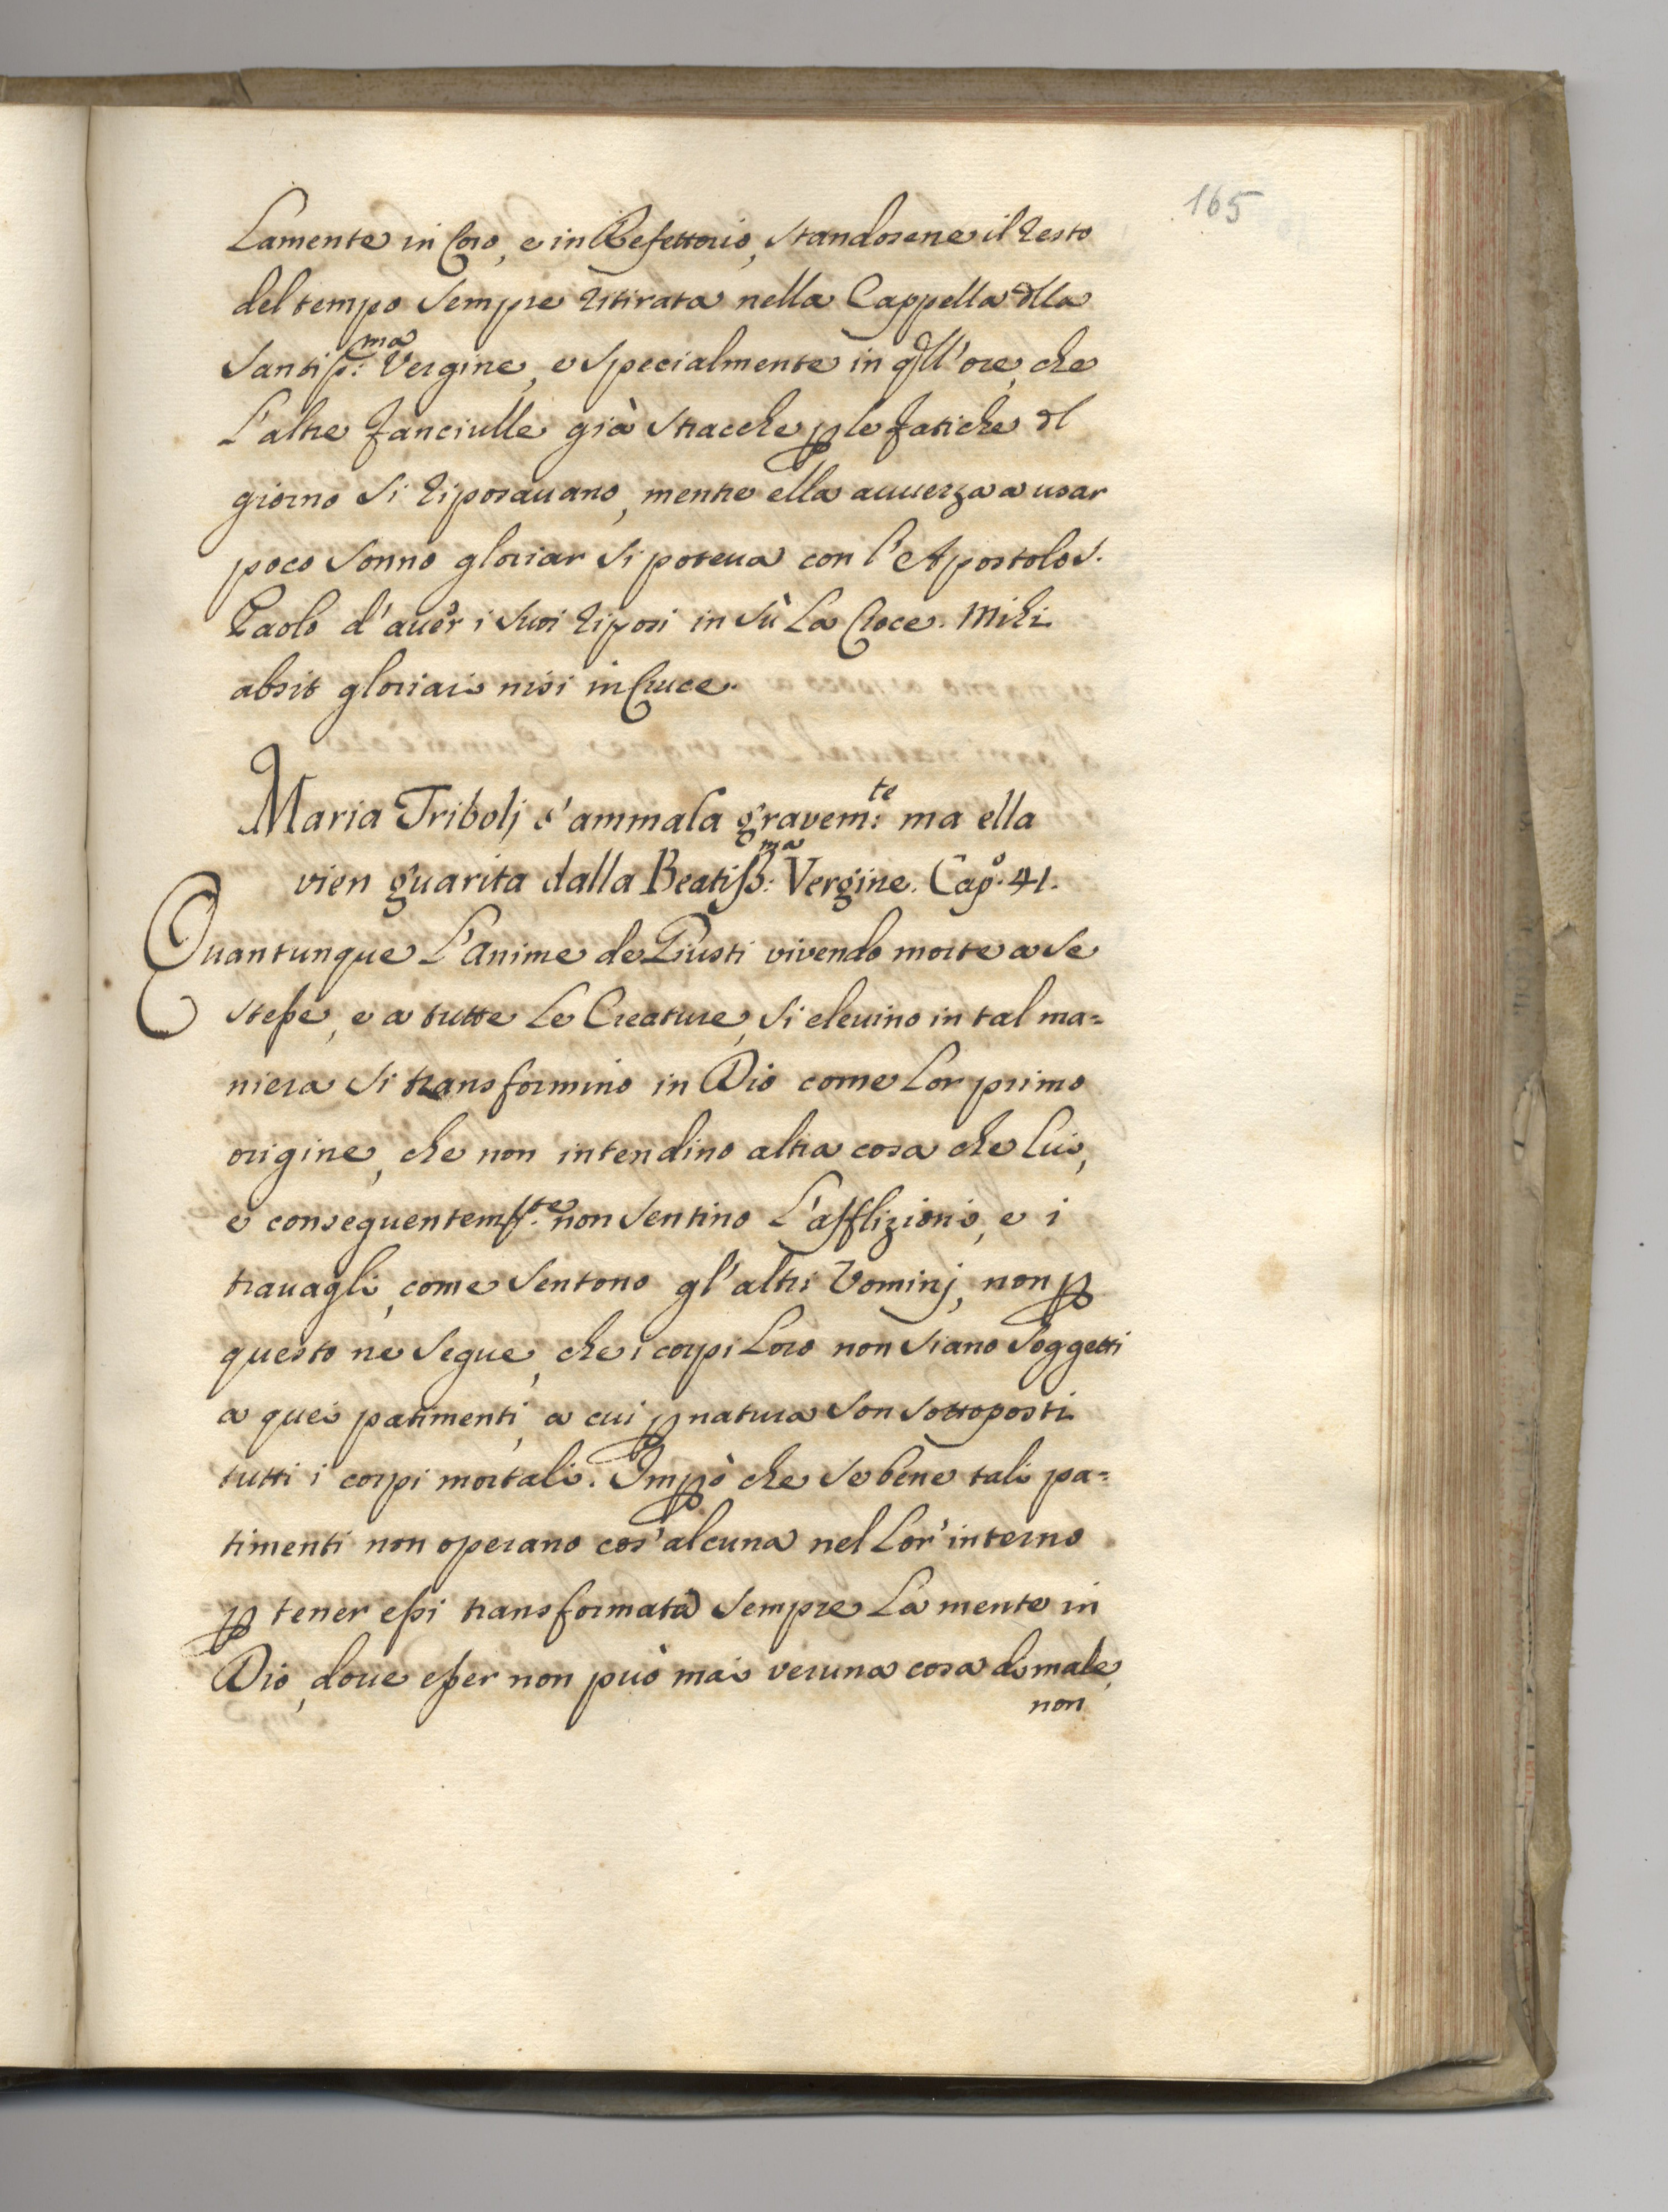 165
lamente in Coro, e in Refettorio, standosene il resto
del tempo sempre ritirata nella Cappella dlla
Santiss:ma Vergine, e specialmente in qll'ore, che
l'altre fanciulle già stracche p le fatiche dl
giorno si riposauano, mentre ella auuezza a usar
poco sonno gloriar si poteua con l'Apostolo S.
Paolo d'auer i suoi riposi in sù la Croce. Mihi
absit gloriari nisi in Cruce.
Maria Tribolj s'ammala gravem:te ma ella
vien guarita dalla Beatiss:ma Vergine. Capo. 41.
Quantunque l'anime de Giusti vivendo morte a se
stesse, e a tutte le Creature, si eleuino in tal ma=
niera si transformino in Dio come lor primo
origine, che non intendino altra cosa che lui,
e conseguentem.te non sentino l'afflizioni, e i
trauagli, come sentono gl'altri Vominj, non p
questo ne segue, che i corpi loro non siano soggetti
a quei patimenti, a cui p natura son sottoposti
tutti i corpi mortali. Impò che se bene tali pa=
timenti non operano cos'alcuna nel lor' interno
p tener essi transformata sempre la mente in
Dio, doue esser non può mai veruna cosa di male,
non